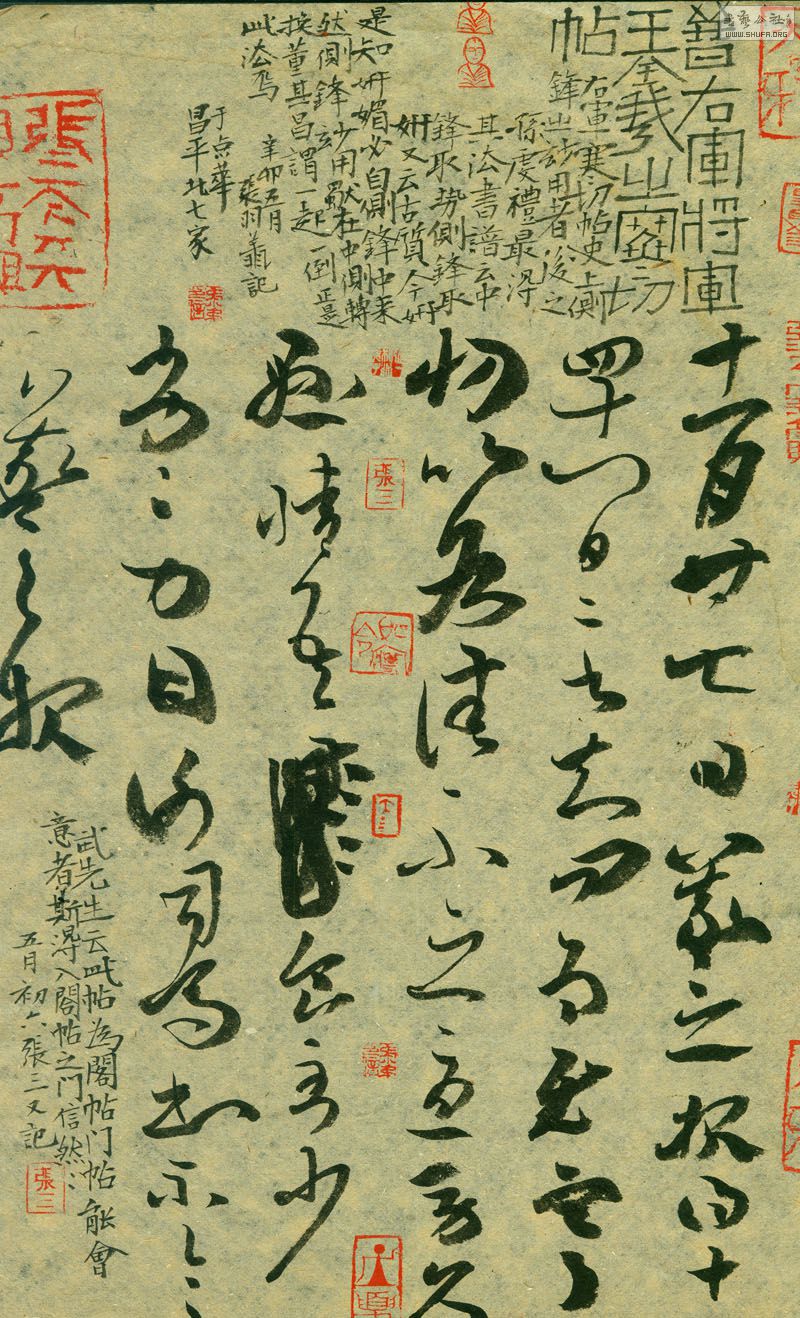 书艺公社
WWW.SHUFA.ORG
晉右軍將軍
王羲之寒切
帖
右軍寒切帖史上側
鋒出妙用者後之
孫虔禮最得
其法書譜云中
鋒取勢側鋒取
妍又云古質今妍
是知妍媚必自側鋒中来
然側鋒妙用歟在中側轉
換董其昌謂一起一倒正是
此法焉
辛卯五月
張羽記
于点華
昌平北七家
十一月廿七日羲之報得十
四十八日二書知問為慰寒
切比各佳不念憂勞久
懸情吾食甚少
劣々力因謝司馬書不一一
羲之報
武先生云此帖為閣帖门帖能會
意者斯得入閣帖之门信然々
五月初六張三又記
張三
張三